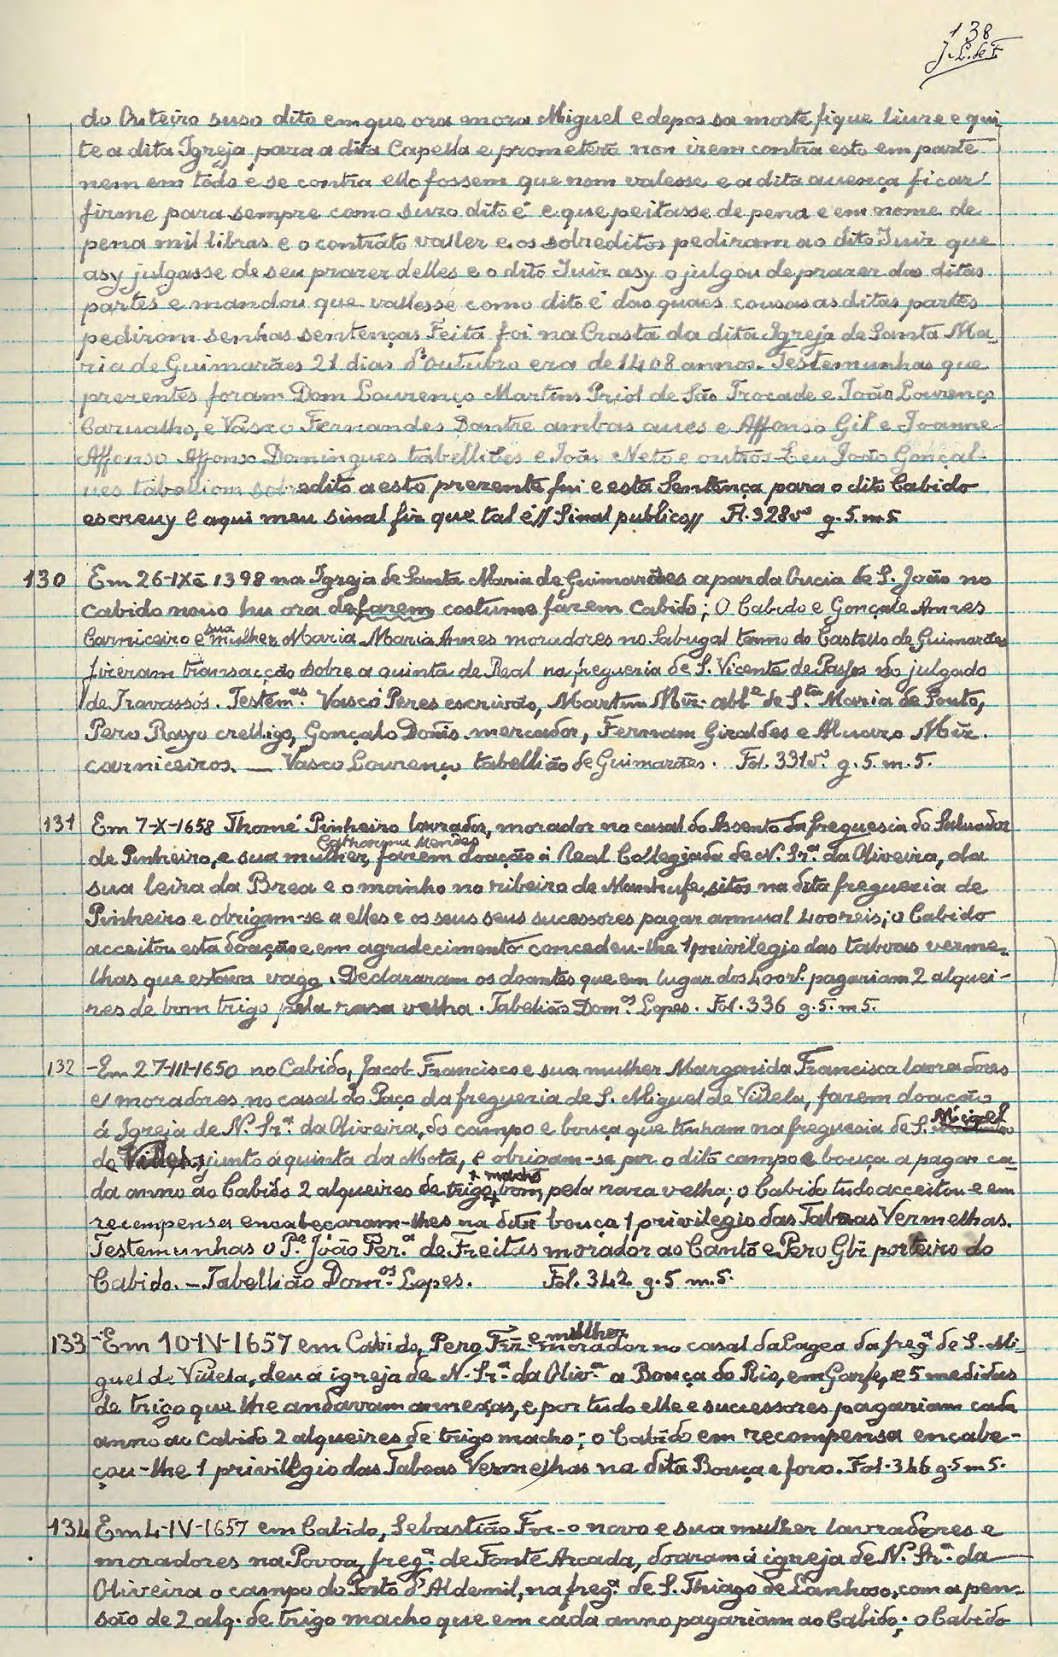 138
J. L. de F.
do Outeiro suso dito em que ora mora Miguel e depos sa morte fique liure e qui
te a dita Igreja para a dita Capella e prometerõ non irem contra esto em parte
nem em todo e se contra ello fossem que nom valesse e a dita auença ficar
firme para sempre como suzo dito é e que peitasse de pena e em nome de
pena mil libras e o contrato valler e os sobreditos pediram ao dito Juiz que
asy julgasse de seu prazer delles e o dito Juiz asy o julgou de prazer das ditas
partes e mandou que vallesse como dito é das quaes cousas as ditas partes
pedirom senhas sentenças Feita foi na Crasta da dita Igreja de Santa Ma
ria de Guimarães 21 dias d'outubro era de 1408 annos. Testemunhas que
prezentes foram Dom Lourenço Martins Priol de São Trocade e João Lourenço
Carualho, e Vasco Fernandes Dantre ambas aues e Affonso Gil e Joanne
Affonso Affonso Domingues tabelliães e João Neto e outros E eu João Gonçal
ues tabelliom sobredito a esto prezente fui e esta Sentença para o dito Cabido
escreuy e aqui meu sinal fiz que tal é // Sinal publico // Fl. 328vº g. 5. m. 5
130 Em 26-IXê 1398 na Igreja de Santa Maria de Guimarães a par da Oucia de S. João no
cabido nouo hu ora de fazem costume fazem Cabido; O Cabido e Gonçale Annes
Carniceiro e sua mulher Maria Maria Annes moradores no Sabugal termo do Castello de Guimarães
fizeram transacção sobre a quinta de Real na freguezia de S. Vicente de Passos do julgado
de Travassós. Testem.as Vasco Peres escrivão, Martim Mĩz. abb.e de S.ta Maria de Souto,
Pero Rayo crelligo, Gonçalo Domĩs. mercador, Fernam Giraldes e Aluaro Mĩz.
carniceiros. — Vasco Lourenço tabellião de Guimarães. Fol. 331vº g. 5. m. 5.
131 Em 7-X-1658 Thomé Pinheiro lavrador, morador no casal do Assento da freguesia do Salvador
de Pinheiro, e sua mulher Catharyna Mendes, fazem doação á Real Collegiada de N. Sr.a da Oliveira, da
sua leira da Brea e o moinho no ribeiro de Manhufe, sitos na dita freguezia de
Pinheiro e obrigam-se a elles e os seus seus sucessores pagar annual 400 reis; o Cabido
acceitou esta doação e em agradecimento concedeu-lhe 1 privilegio das taboas verme-
lhas que estava vago. Declararam os doantes que em lugar dos 400 rs. pagariam 2 alquei-
res de bom trigo pela rasa velha. Tabelião Dom.os Lopes. Fol. 336 g. 5. m 5.
132 -Em 27-III-1650 no Cabido, Jacob Francisco e sua mulher Margarida Francisca lavradores
e moradores no casal do Paço da freguezia de S. Miguel de Villela, fazem doação
á Igreja de N. Sr.a da Oliveira, do campo e bouça que tinham na freguesia de S. Miguel
de Villela, junto á quinta da Mota, e obrigam-se por o dito campo e bouça a pagar ca-
da anno ao Cabido 2 alqueires de trigo macho, bom, pela raza velha; o Cabido tudo acceitou e em
recompensa encabeçaram-lhes na dita bouça 1 privilegio das Taboas Vermelhas.
Testemunhas o P.e João Per.a de Freitas morador ao Canto e Pero Glz porteiro do
Cabido. — Tabellião Dom.os Lopes. Fol. 342 g. 5 m. 5.
133 -Em 10-IV-1657 em Cabido, Pero Frz. e mulher morador no casal da Lagea da freg.a de S. Mi-
guel de Villela, deu á igreja de N. Sr.a da Oliv.a a Bouça do Rio, em Garfe, e 5 medidas
de trigo que lhe andavam annexas, e por tudo elle e sucessores pagariam cada
anno ao Cabido 2 alqueires de trigo macho; o Cabido em recompensa encabe-
çou-lhe 1 privilegio das Taboas Vermelhas na dita Bouça e foro. Fol. 346 g. 5 m 5.
134 Em 4-IV-1657 em Cabido, Sebastião Frz. o novo e sua mulher lavradores e
moradores na Povoa, freg.a de Fonte Arcada, doaram á igreja de N. Sr.a da
Oliveira o campo do Porto d'Aldemil, na freg.a de S. Thiago de Lanhoso, com a pen-
são de 2 alq. de trigo macho que em cada anno pagariam ao Cabido; o Cabido